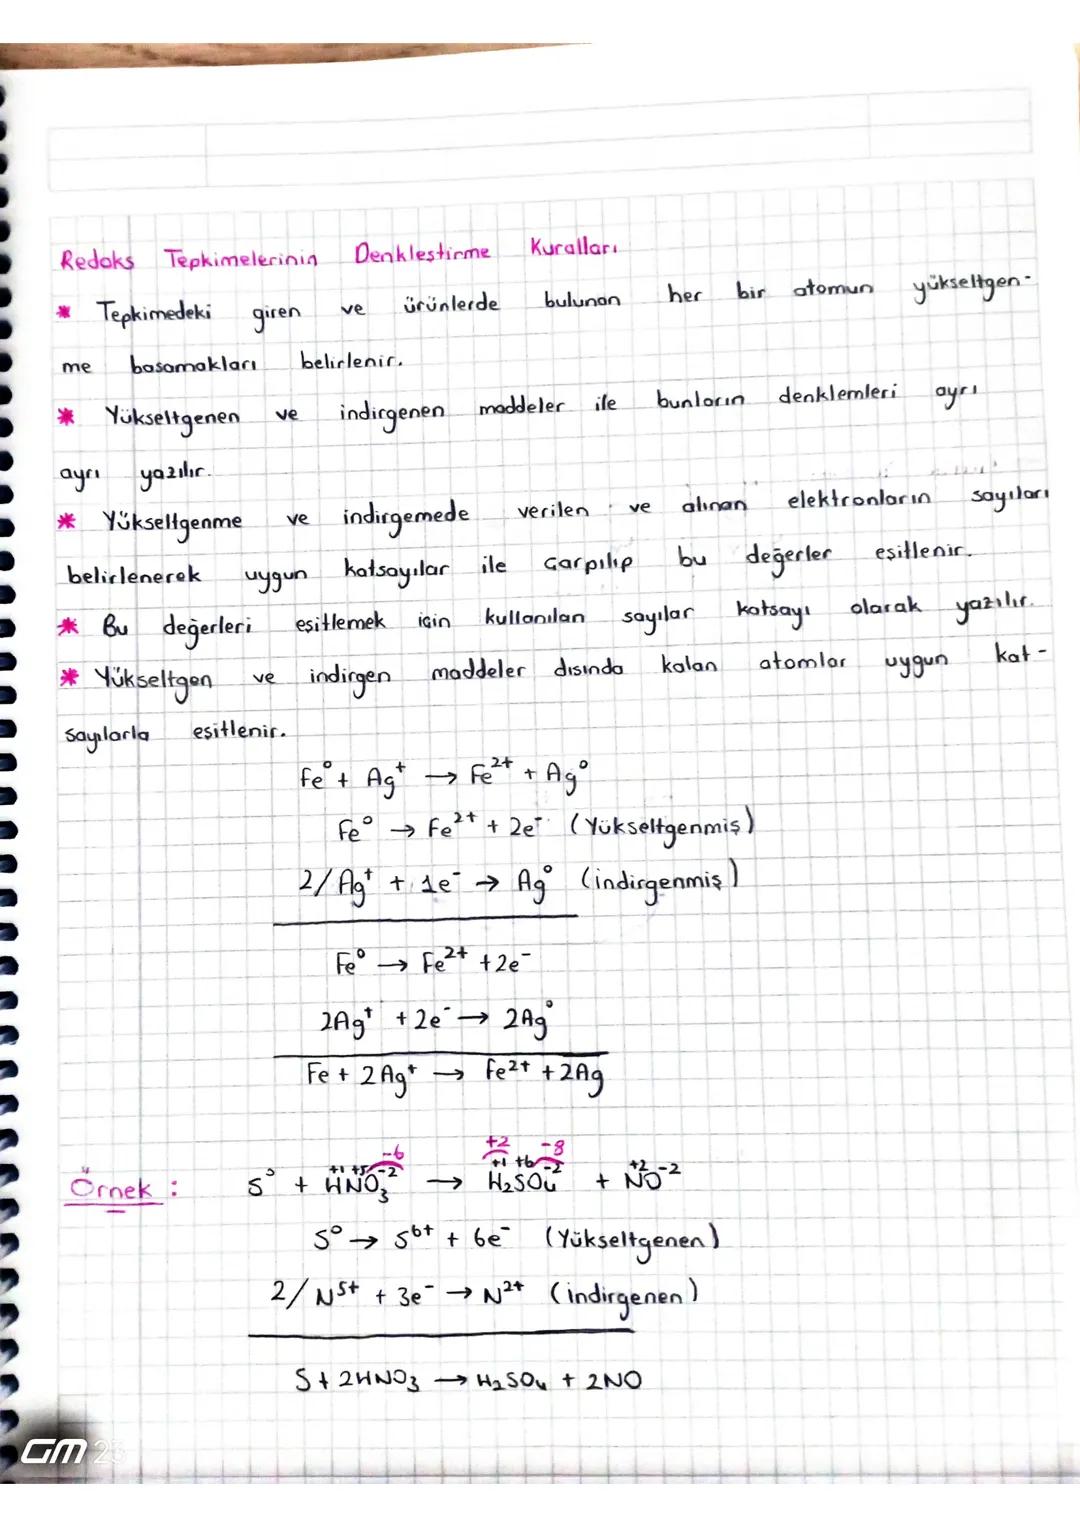 Redoks Tepkimelerinin Denkleştirme Kuralları
* Tepkimedeki giren ve ürünlerde bulunan her bir atomun yükseltgen-
me basamakları belirlenir.
* Yükseltgenen ve indirgenen maddeler ile bunların denklemleri ayrı
ayrı yazılır.
* Yükseltgenme ve indirgemede verilen ve alınan elektronların sayıları
belirlenerek uygun katsayılar ile çarpılıp bu değerler eşitlenir.
* Bu değerleri eşitlemek için kullanılan sayılar katsayı olarak yazılır.
* Yükseltgen ve indirgen maddeler dısında kalan atomlar uygun kat-
sayılarla eşitlenir.
Fe⁰ + Ag⁺ → Fe²⁺ + Ag⁰
Fe⁰ → Fe²⁺ + 2e⁻ (Yükseltgenmiş)
2/ Ag⁺ + 1e⁻ → Ag⁰ (indirgenmiş)
Fe⁰ → Fe²⁺ + 2e⁻
2Ag⁺ + 2e⁻ → 2Ag⁰
Fe + 2Ag⁺ → Fe²⁺ + 2Ag
-6 +2 -8
+1 +5 -2 +1 +6 -2 +2 -2
Örnek : S⁰ + HNO₃ → H₂SO₄ + NO
S⁰ → S⁶⁺ + 6e⁻ (Yükseltgenen)
2/ N⁵⁺ + 3e⁻ → N²⁺ (indirgenen)
S + 2HNO₃ → H₂SO₄ + 2NO
GM 23